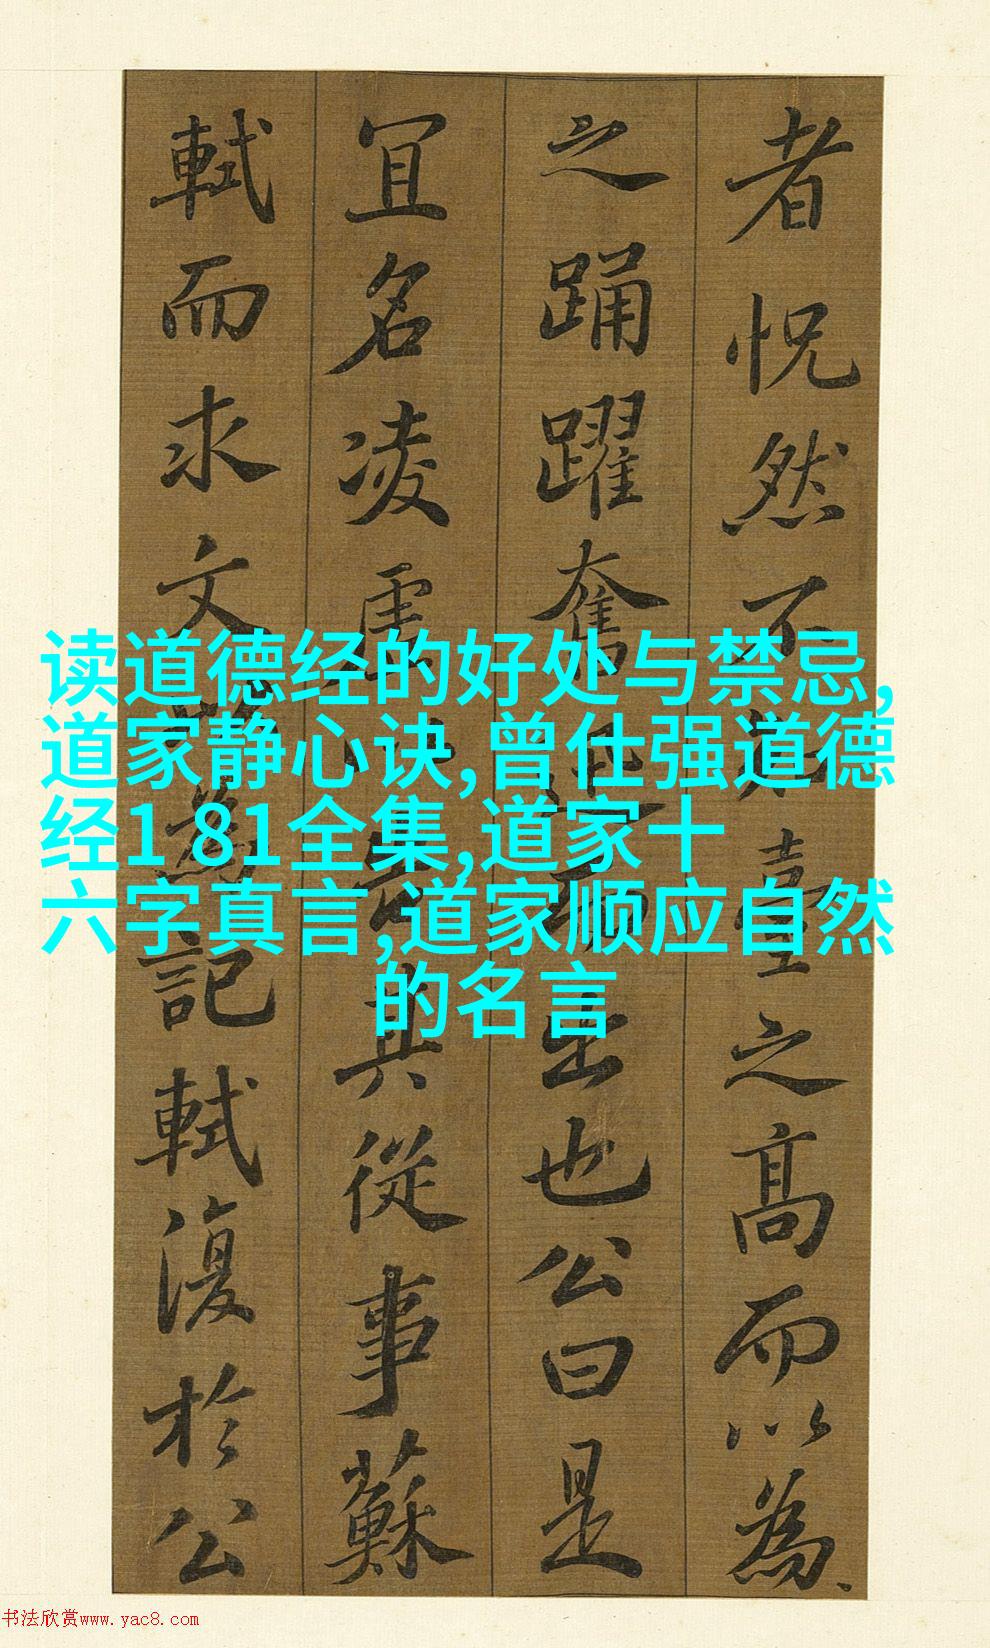 者怳然不知臺之髙而以為
之踊躍奮迅而出也公曰是
宜名凌虛以告其從事蘇
軾而求文以為記軾復於公
读道德经的好处与禁忌,
道家静心诀,曾仕强道德
经1 81全集,道家十
六字真言,道家顺应自然
的名言
书法欣赏www.yac8.com